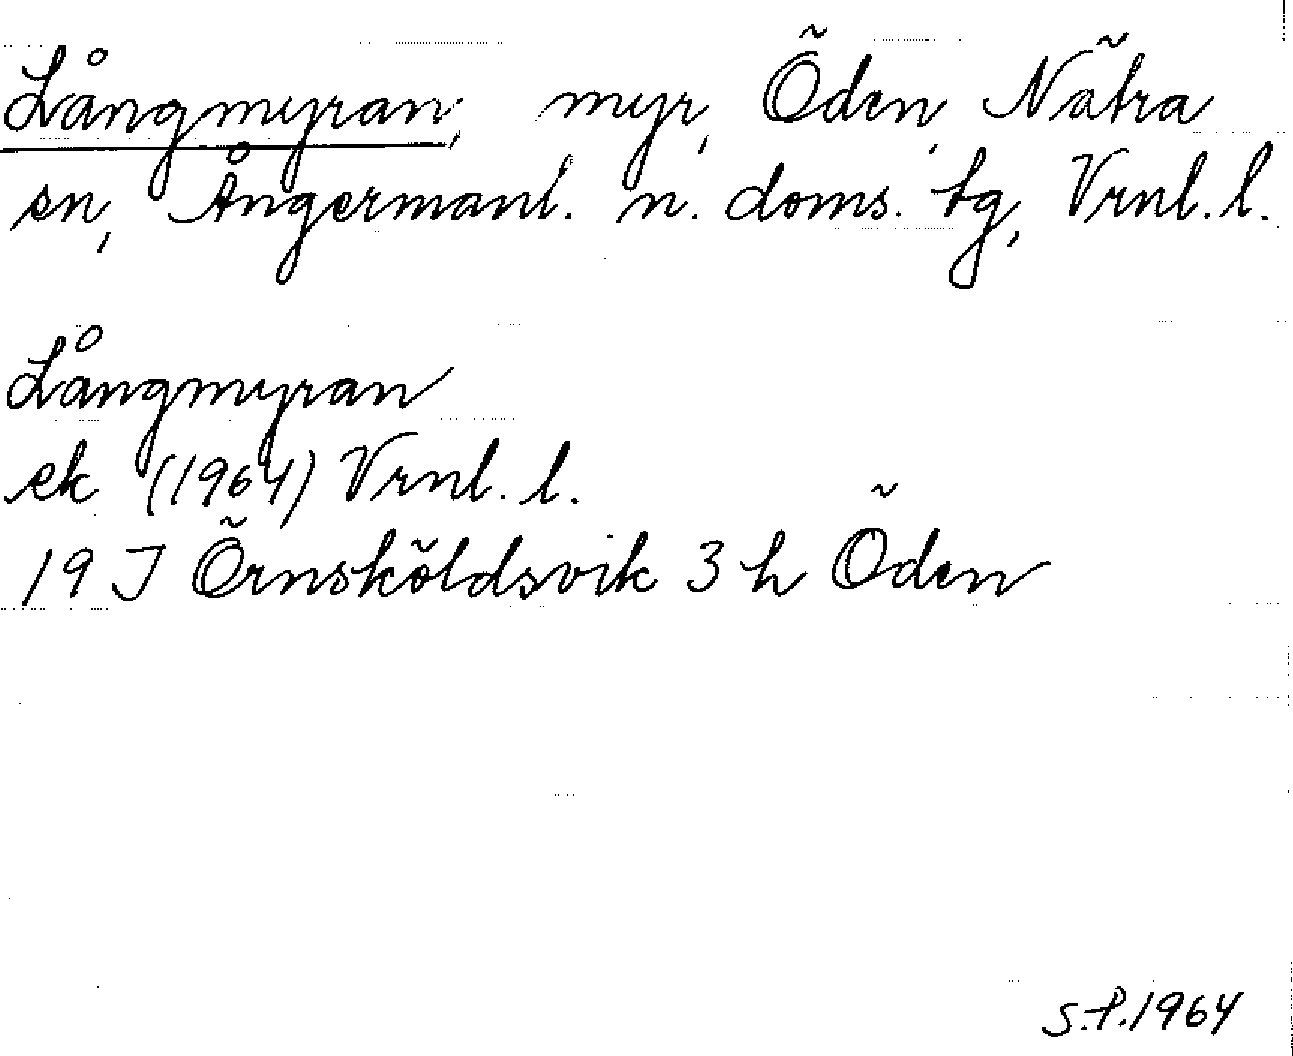 Långmyran, myr, Öden, Nätra
sn, Ångermanl. n. doms. tg, Vrnl. l.
Långmyran
ek (1964) Vrnl. l.
19 J Örnsköldsvik 3 h Öden
S.P. 1964